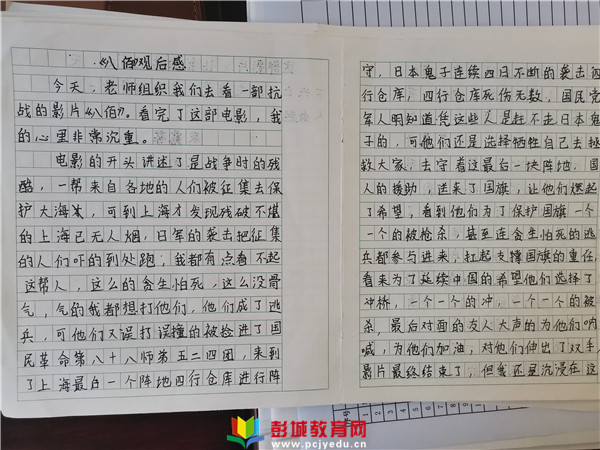 《八佰》观后感
今天，老师组织我们去看一部抗
战的影片《八佰》。看完了这部电影，我
的心里非常沉重。
电影的开头讲述了是战争时的残
酷，一帮来自各地的人们被征集去保
护大上海，可到上海才发现残破不堪
的上海已无人烟，日军的袭击把征集
的人们吓的到处跑，我都有点看不起
这帮人，这么的贪生怕死，这么没骨
气，气的我都想打他们，他们成了逃
兵，可他们又误打误撞的被捡进了国
民革命第八十八师第五二四团，来到
了上海最后一个阵地四行仓库进行阵
守，日本鬼子连续四日不断的袭击四
行仓库，四行仓库死伤无数，国民党
军人明知道凭这些人是赶不走日本鬼
子的，可他们还是选择牺牲自己去拯
救大家，去守着这最后一块阵地，国
人的援助，送来了国旗，让他们燃起
了希望，看到他们为了保护国旗一个
一个的被枪杀，甚至连贪生怕死的逃
兵都参与进来，扛起支撑国旗的重任，
看来为了延续中国的希望他们选择了
冲桥，一个一个的冲，一个一个的被
杀，最后对面的友人大声的为他们呐
喊，为他们加油，对他们伸出了双手，
影片最终结束了，但我还是沉浸在这
彭城教育网
www.pcjyedu.cn